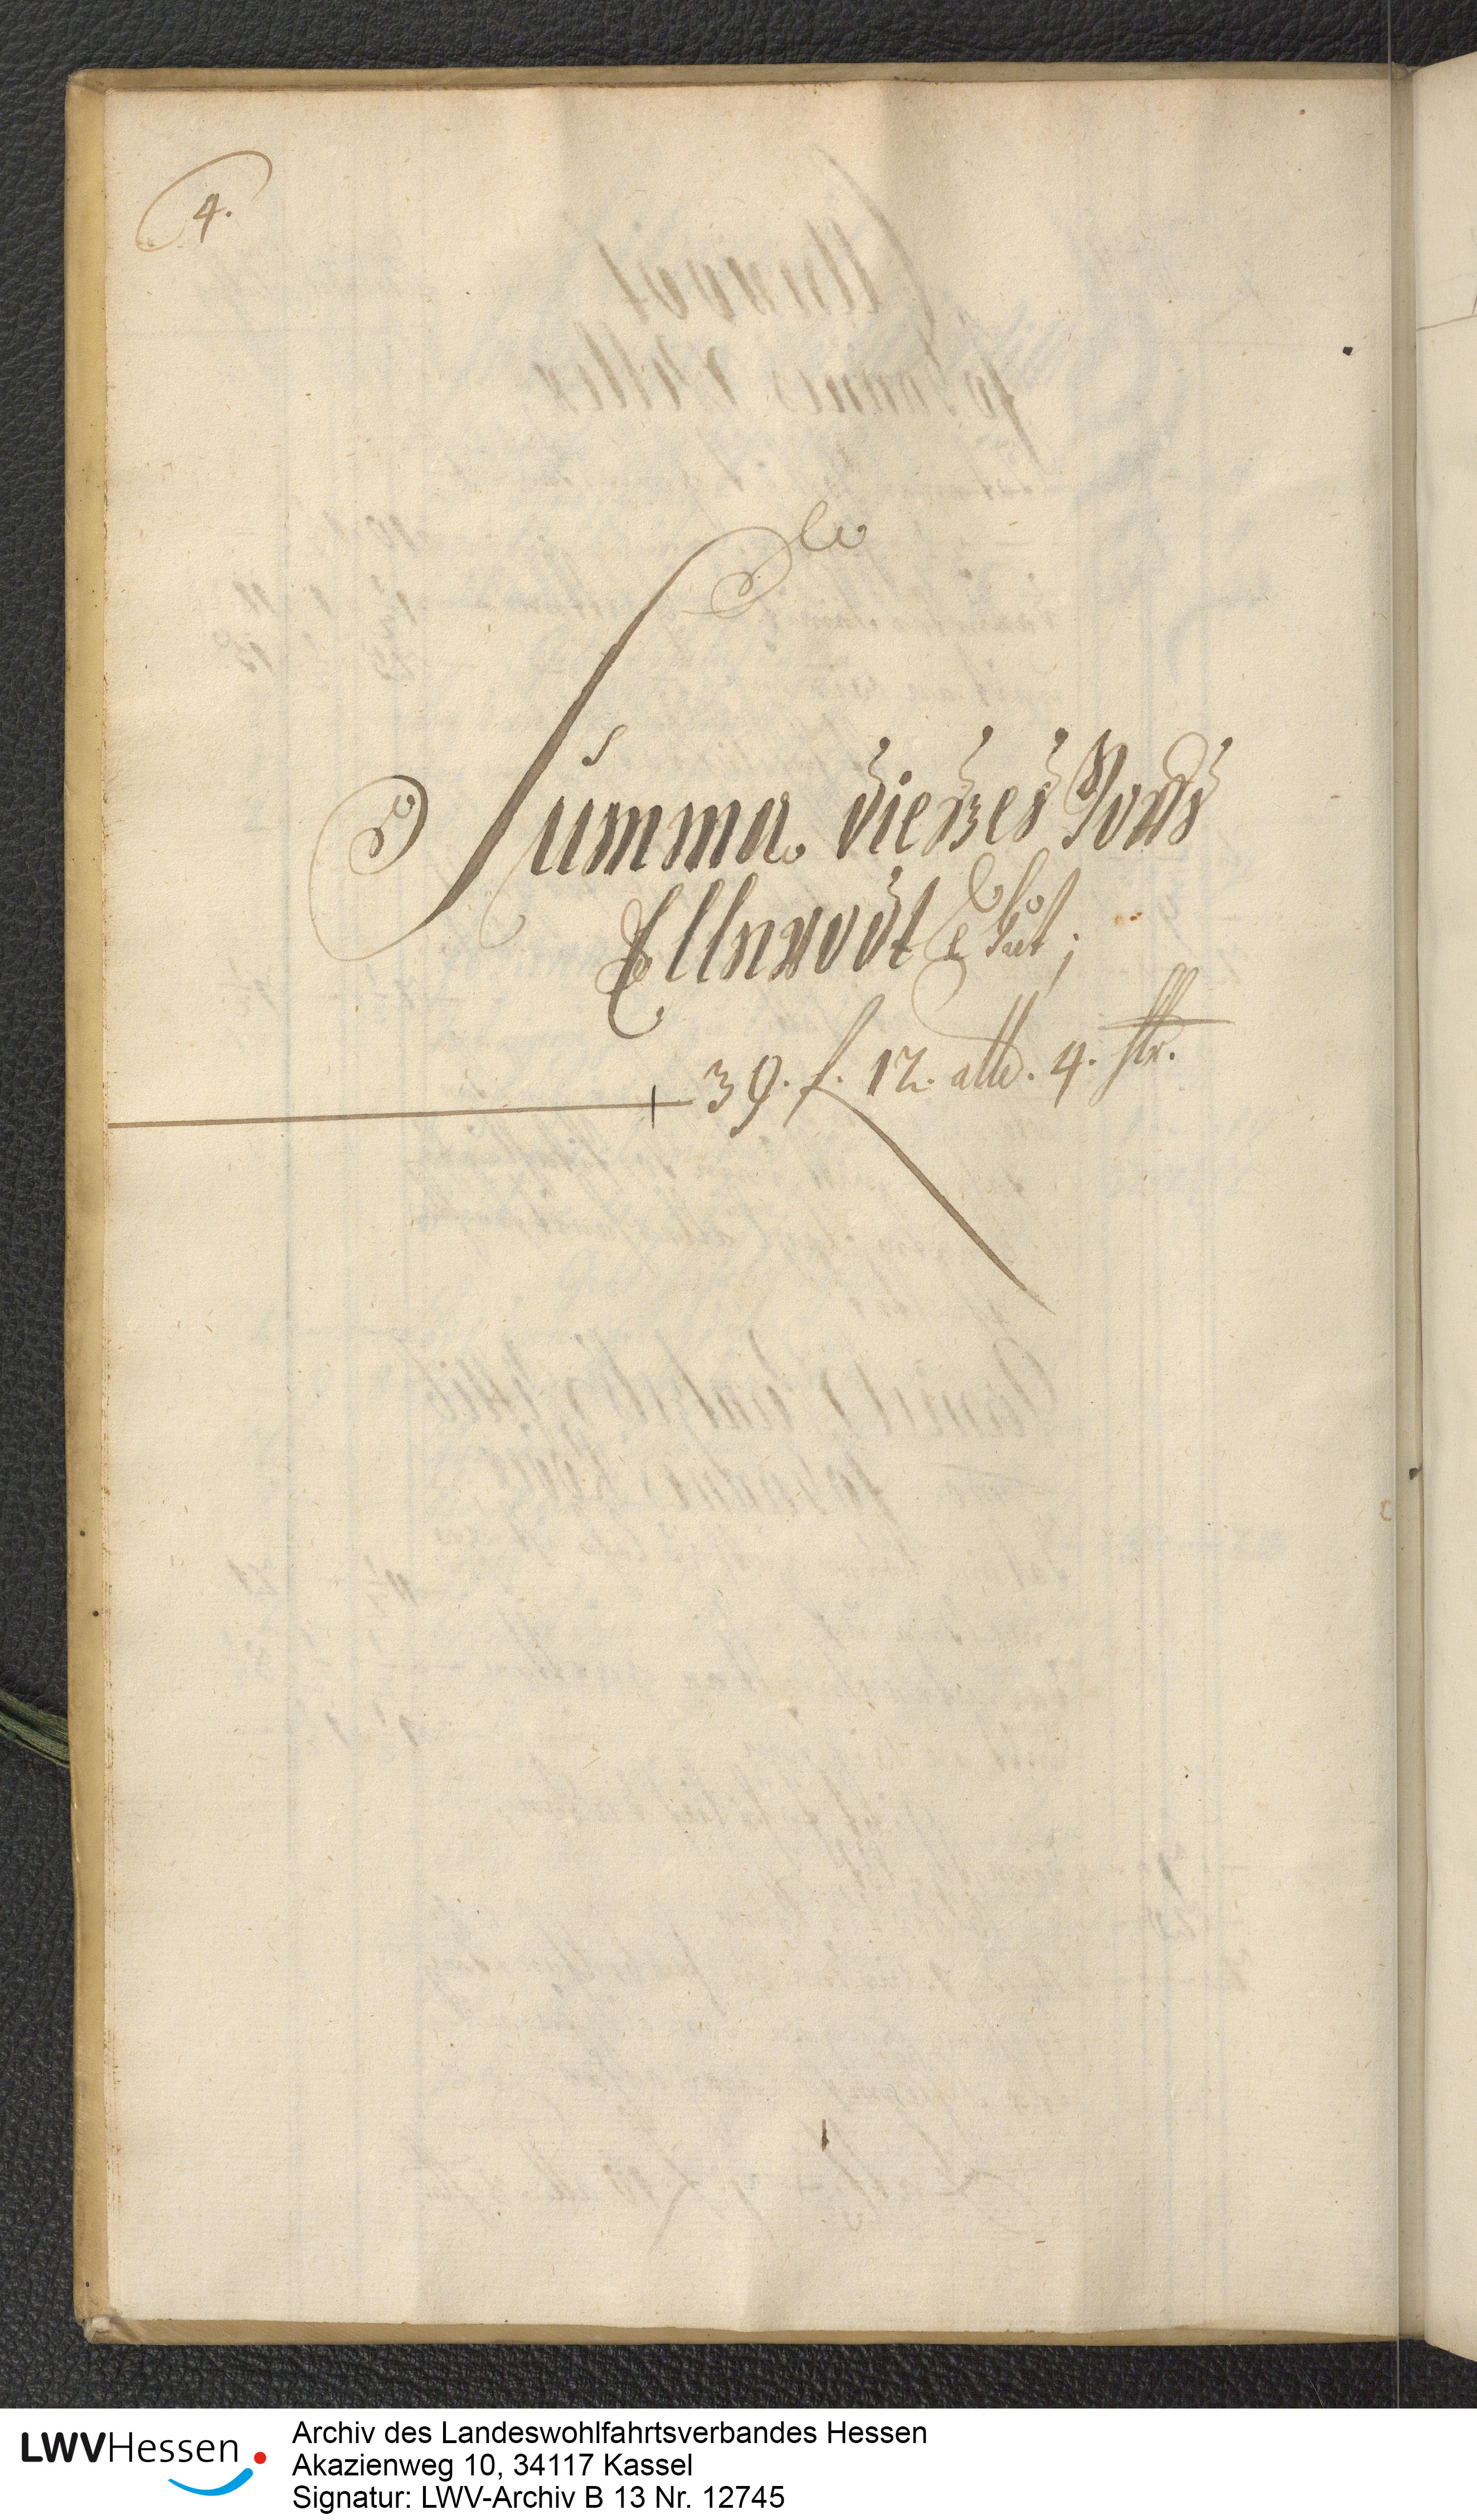 4.
Summa dießes Dorfs
Ellnrodt thut;
39. f. 12. alb. 4. hlr.
LWVHessen
Archiv des Landeswohlfahrtsverbandes Hessen
Akazienweg 10, 34117 Kassel
Signatur: LWV-Archiv B 13 Nr. 12745